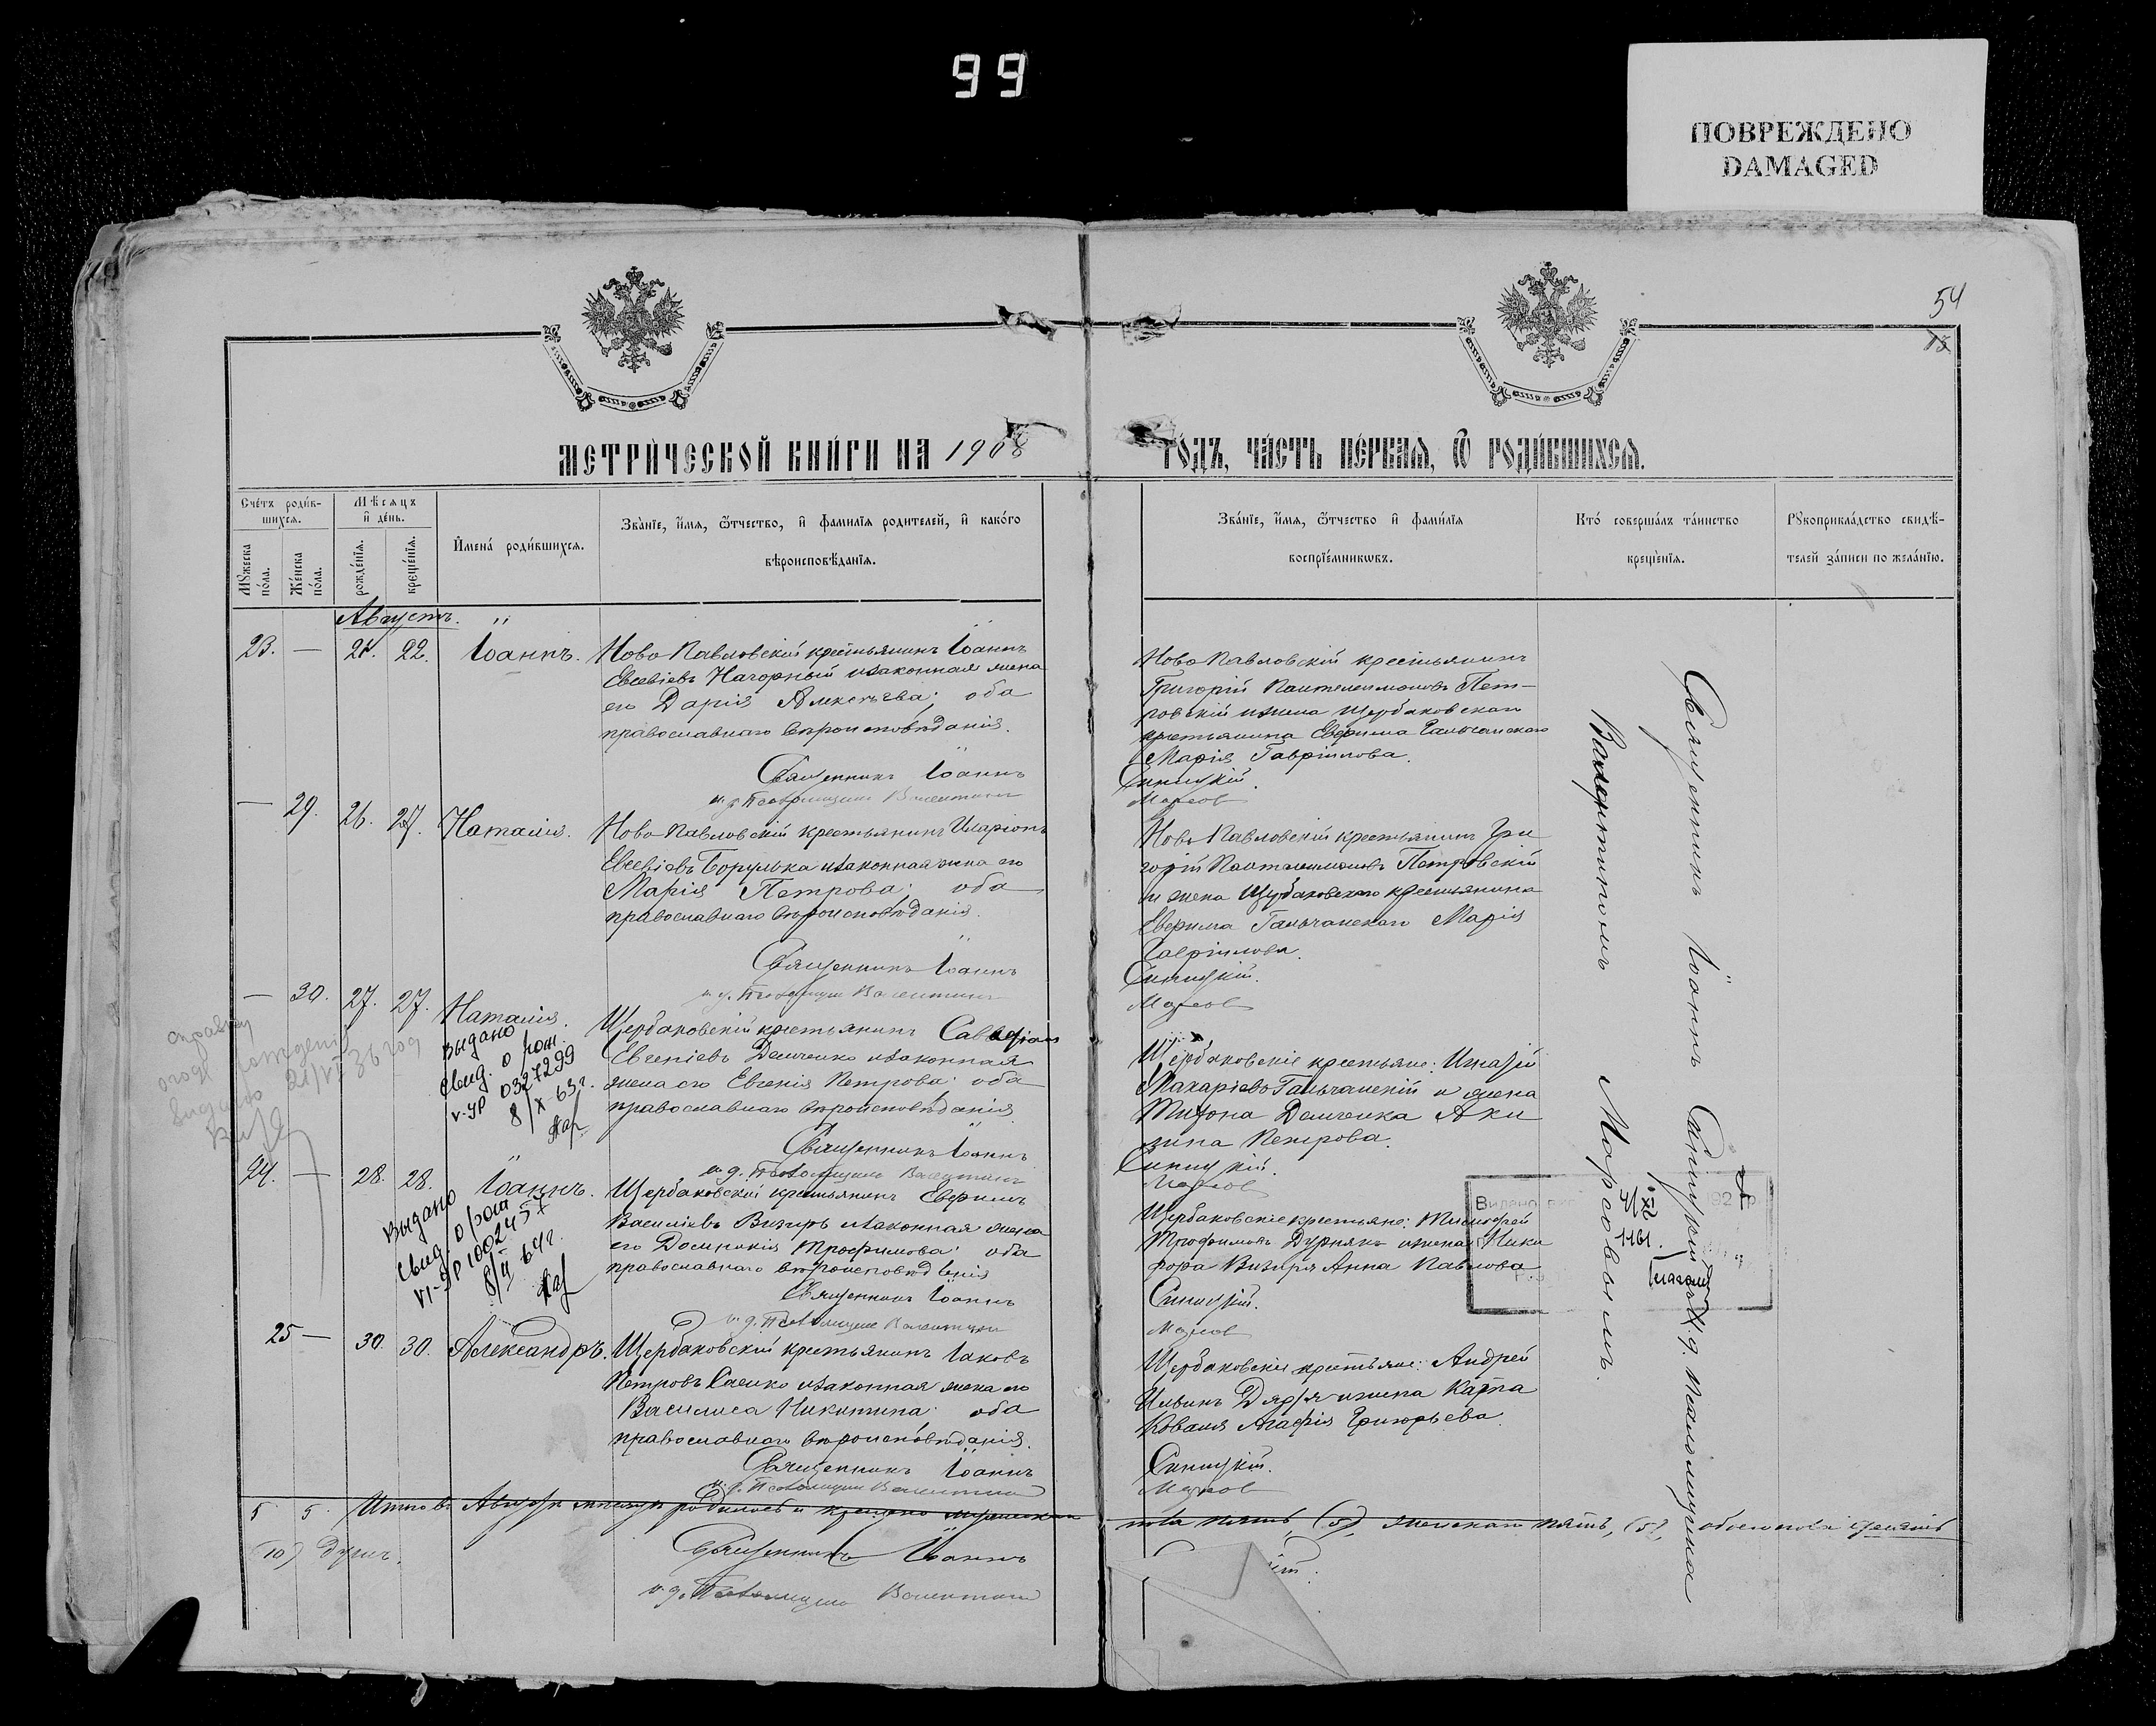 99
ПОВРЕЖДЕНО
DAMAGED
54
МЕТРИЧЕСКОЙ КНИГИ НА 1908
ГОДЪ, ЧАСТЬ ПЕРВАЯ, Ѿ РОДИВШИХСЯ.
Счетъ родив-
шихся.
Мѣсяцъ
и день.
Мужеска
пола.
Женска
пола.
рожденія.
крещенія.
Имена родившихся.
Званіе, имя, ѿчество, и фамилія родителей, и какого
вѣроисповѣданія.
Званіе, имя, ѿчество и фамилія
воспріемниковъ.
Кто совершалъ таинство
крещенія.
Рукоприкладство свидѣ-
телей записи по желанію.
Августъ.
23. — 21. 22. Іоаннъ.
Ново Павловскій крестьянинъ Іоаннъ
Евсевіевъ Нагорный и законная жена
его Дарія Алексѣева; оба
православнаго вѣроисповѣданія.
Священникъ Іоаннъ
и. д. Псаломщика Валентинъ
Ново Павловскій крестьянинъ
Григорій Пантелеимоновъ Пет-
ровскій и жена Щербаковскаго
крестьянина Евфима Гальчанскаго
Марія Гавріилова.
Синицкій.
Марсов
— 29. 26. 27. Наталія.
Ново Павловскій крестьянинъ Иларіонъ
Евсевіевъ и законная жена его
Марія Петрова; оба
православнаго вѣроисповѣданія.
Священникъ Іоаннъ
и. д. Псаломщика Валентинъ
Ново Павловскій крестьянинъ Гри
горій Пантелеимоновъ Петровскій
и жена Щербаковскаго крестьянина
Евфима Гальчанскаго Марія
Гавріилова.
Синицкій.
Марсов
— 30. 27. 27. Наталія.
Выдано
свид. о рож.
V-УР 0327299
8/X 63г.
справку
рожденія
21/VI 36 год
Щербаковскій крестьянинъ
Евгеніевъ Демченко и законная
жена его Евгенія Петрова; оба
православнаго вѣроисповѣданія
Священникъ Іоаннъ
и. д. Псаломщика Валентинъ
Щербаковскіе крестьяне:
Макаріевъ Гальчанскій и жена
Демченка Аки
лина Петрова.
Синицкій.
Марсов
24. — 28. 28. Іоаннъ.
Выдано
свид. о рож
8/II 64г.
Щербаковскій крестьянинъ Евфимъ
Василіевъ Визирь и законная жена
его Домникія Трофимова; оба
православнаго вѣроисповѣданія
Священникъ Іоаннъ
и. д. Псаломщика Валентинъ
Щербаковскіе крестьяне: Тимофей
Трофимовъ и жена Ники
фора Визиря Анна Павлова
Синицкій.
Марсов
25 — 30. 30. Александръ.
Щербаковскій крестьянинъ Іаковъ
Петровъ Саенко и законная жена его
Василиса Никитина; оба
православнаго вѣроисповѣданія.
Священникъ Іоаннъ
и. д. Псаломщика Валентинъ
Щербаковскіе крестьяне: Андрей
и жена Карпа
Коваля Агафія Григорьева.
Синицкій.
Марсов
Священникъ Іоаннъ Синицкій съ и. д. псаломщика
Валентиномъ Марсовымъ.
Видано
192 р
1161.
5 5. Итого въ Августѣ мѣсяцѣ родилось и крещено мужеска
пола пять, (5), женскаго пять, (5), обоего пола десять
(10) душъ.
Священникъ Іоаннъ
и. д. Псаломщика Валентинъ